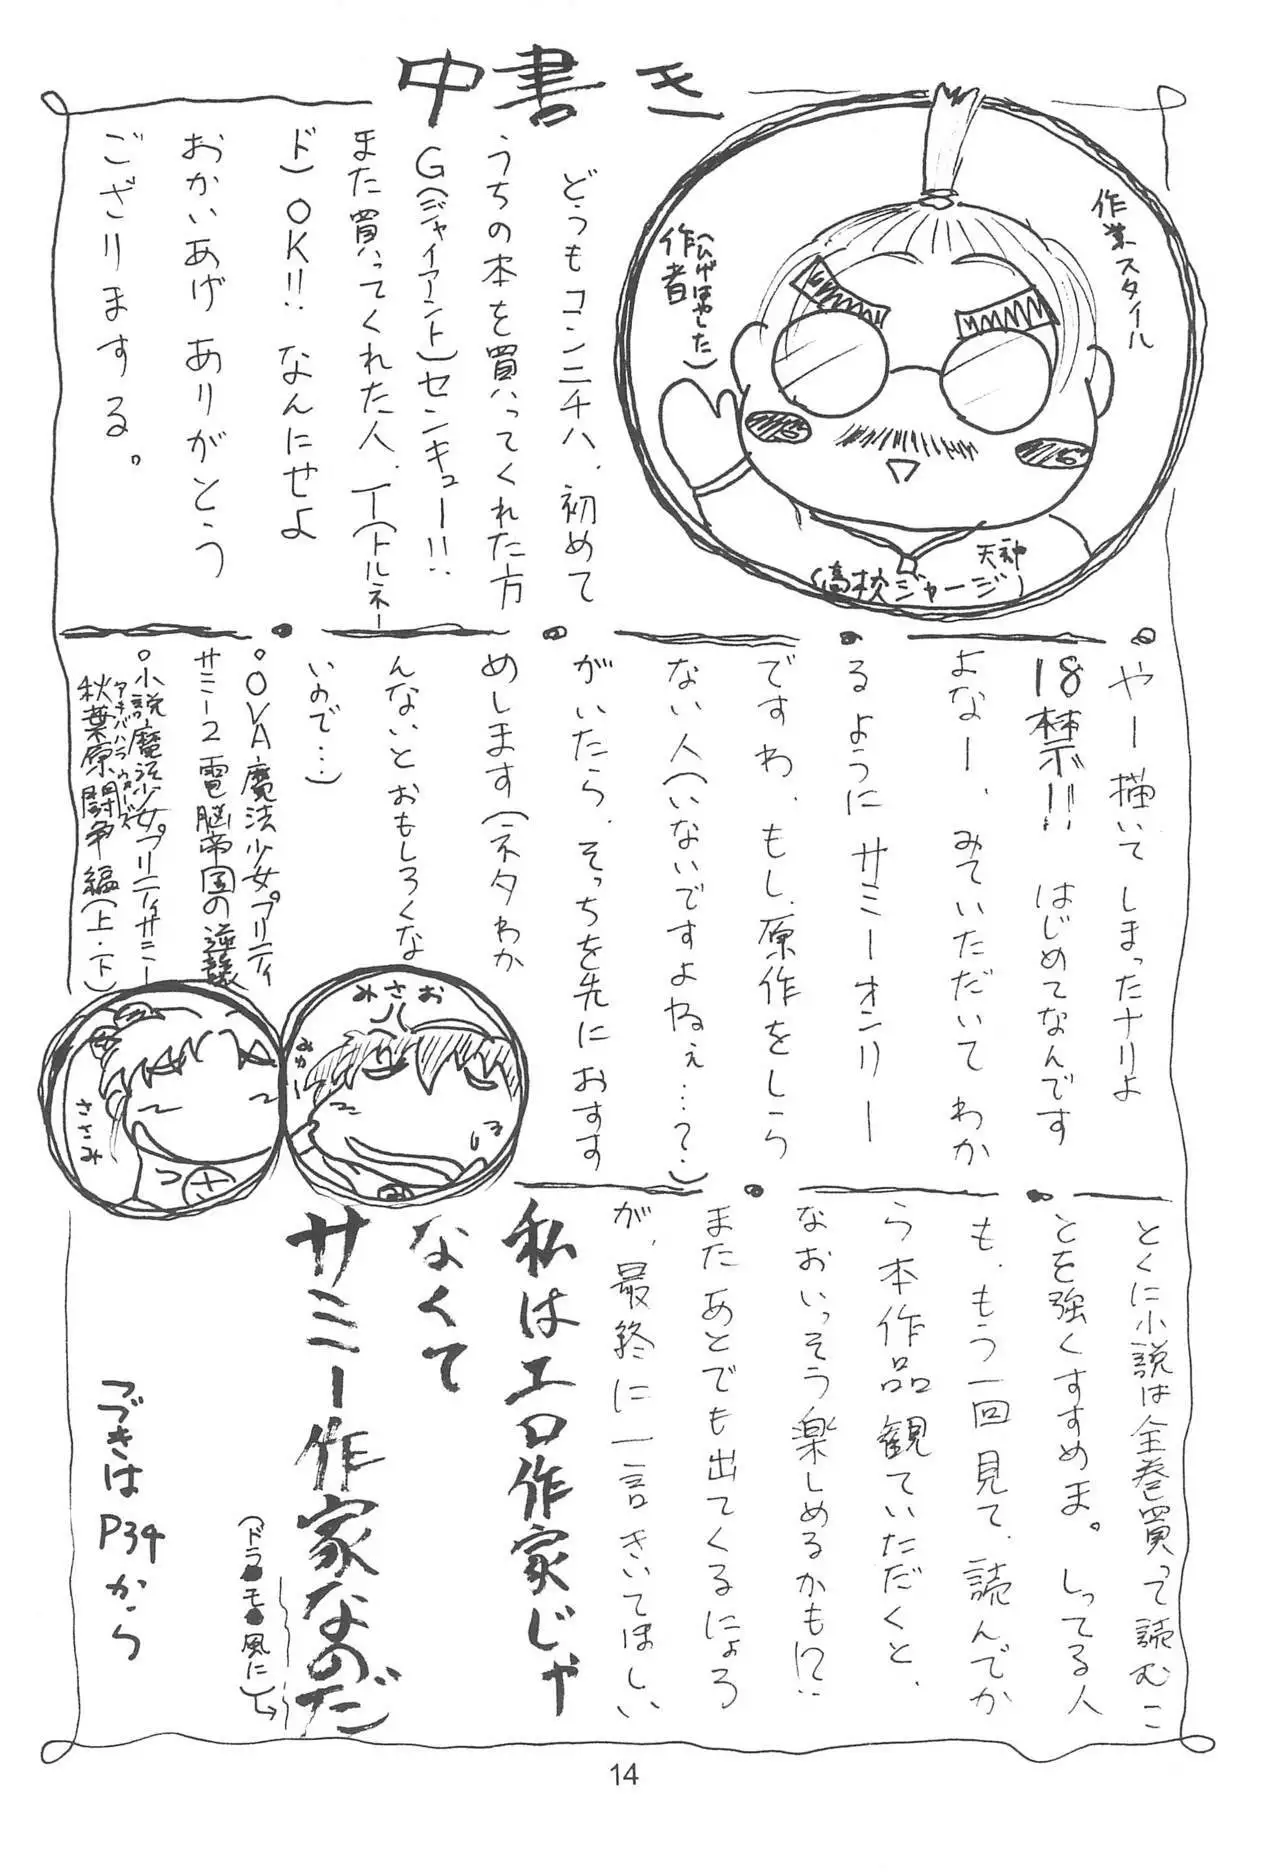 中書き
どうもコンニチハ、初めて
うちの本を買ってくれた方
G(ジャイアント)センキュー!!
また買ってくれた人、T(トルネー
ド)OK!! なんにせよ
おかいあげ ありがとう
ござりまする。
作業スタイル
作者
(ひげはやした)
天神
(高校ジャージ)
やー描いて しまったナリよ
18禁!! はじめてなんです
よなー、みていただいて わか
るように サミーオンリー
ですわ、もし、原作をしら
ない人(いないですよねぇ…?)
がいたら、そっちを先に おすす
めします(ネタわか
んないとおもしろくな
いので…)
○OVA魔法少女プリティ
サミー2電脳帝国の逆襲
○小説魔法少女プリティサミー
アキハバラウォーズ
秋葉原闘争編(上・下)
みさお
みかー
いる
ささみ
さ
とくに小説は全巻買って読むこ
とを強くすすめま。しってる人
も、もう一回見て、読んでか
ら本作品観ていただくと、
なおいっそう楽しめるかも!?
またあとでも出てくるにょろ
が、最終に一言きいてほしい
私はエロ作家じゃ
なくて
サミー作家なのだ
(ドラ●モ●風に)
つづきは P34から
14